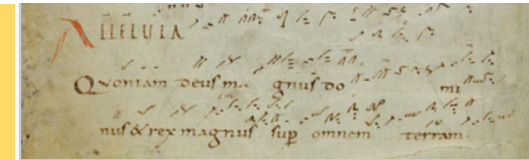 ALLELUIA
Quoniam deus ma gnus do mi
nus & rex magnus sup omnem terram.